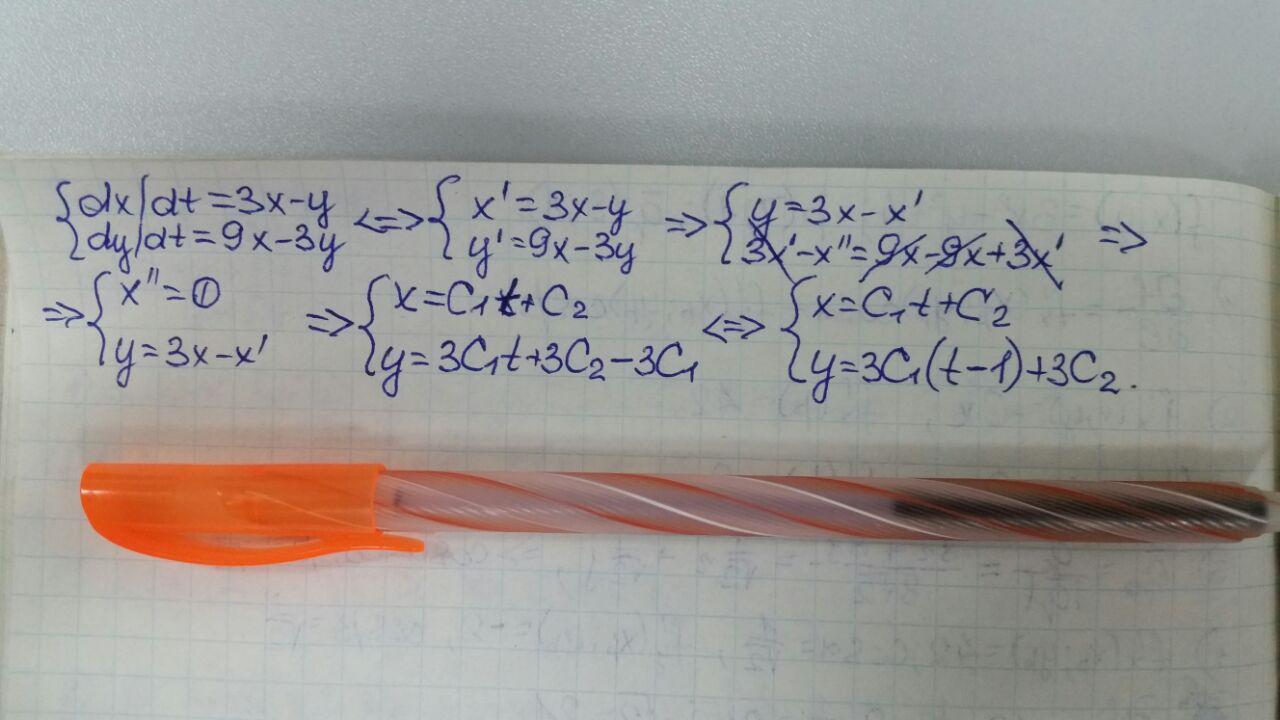 {dx/dt=3x-y dy/dt=9x-3y <=> {x'=3x-y y'=9x-3y => {y=3x-x' 3x'-x''=9x-9x+3x' =>
=> {x''=0 y=3x-x' => {x=C₁t+C₂ y=3C₁t+3C₂-3C₁ <=> {x=C₁t+C₂ y=3C₁(t-1)+3C₂.